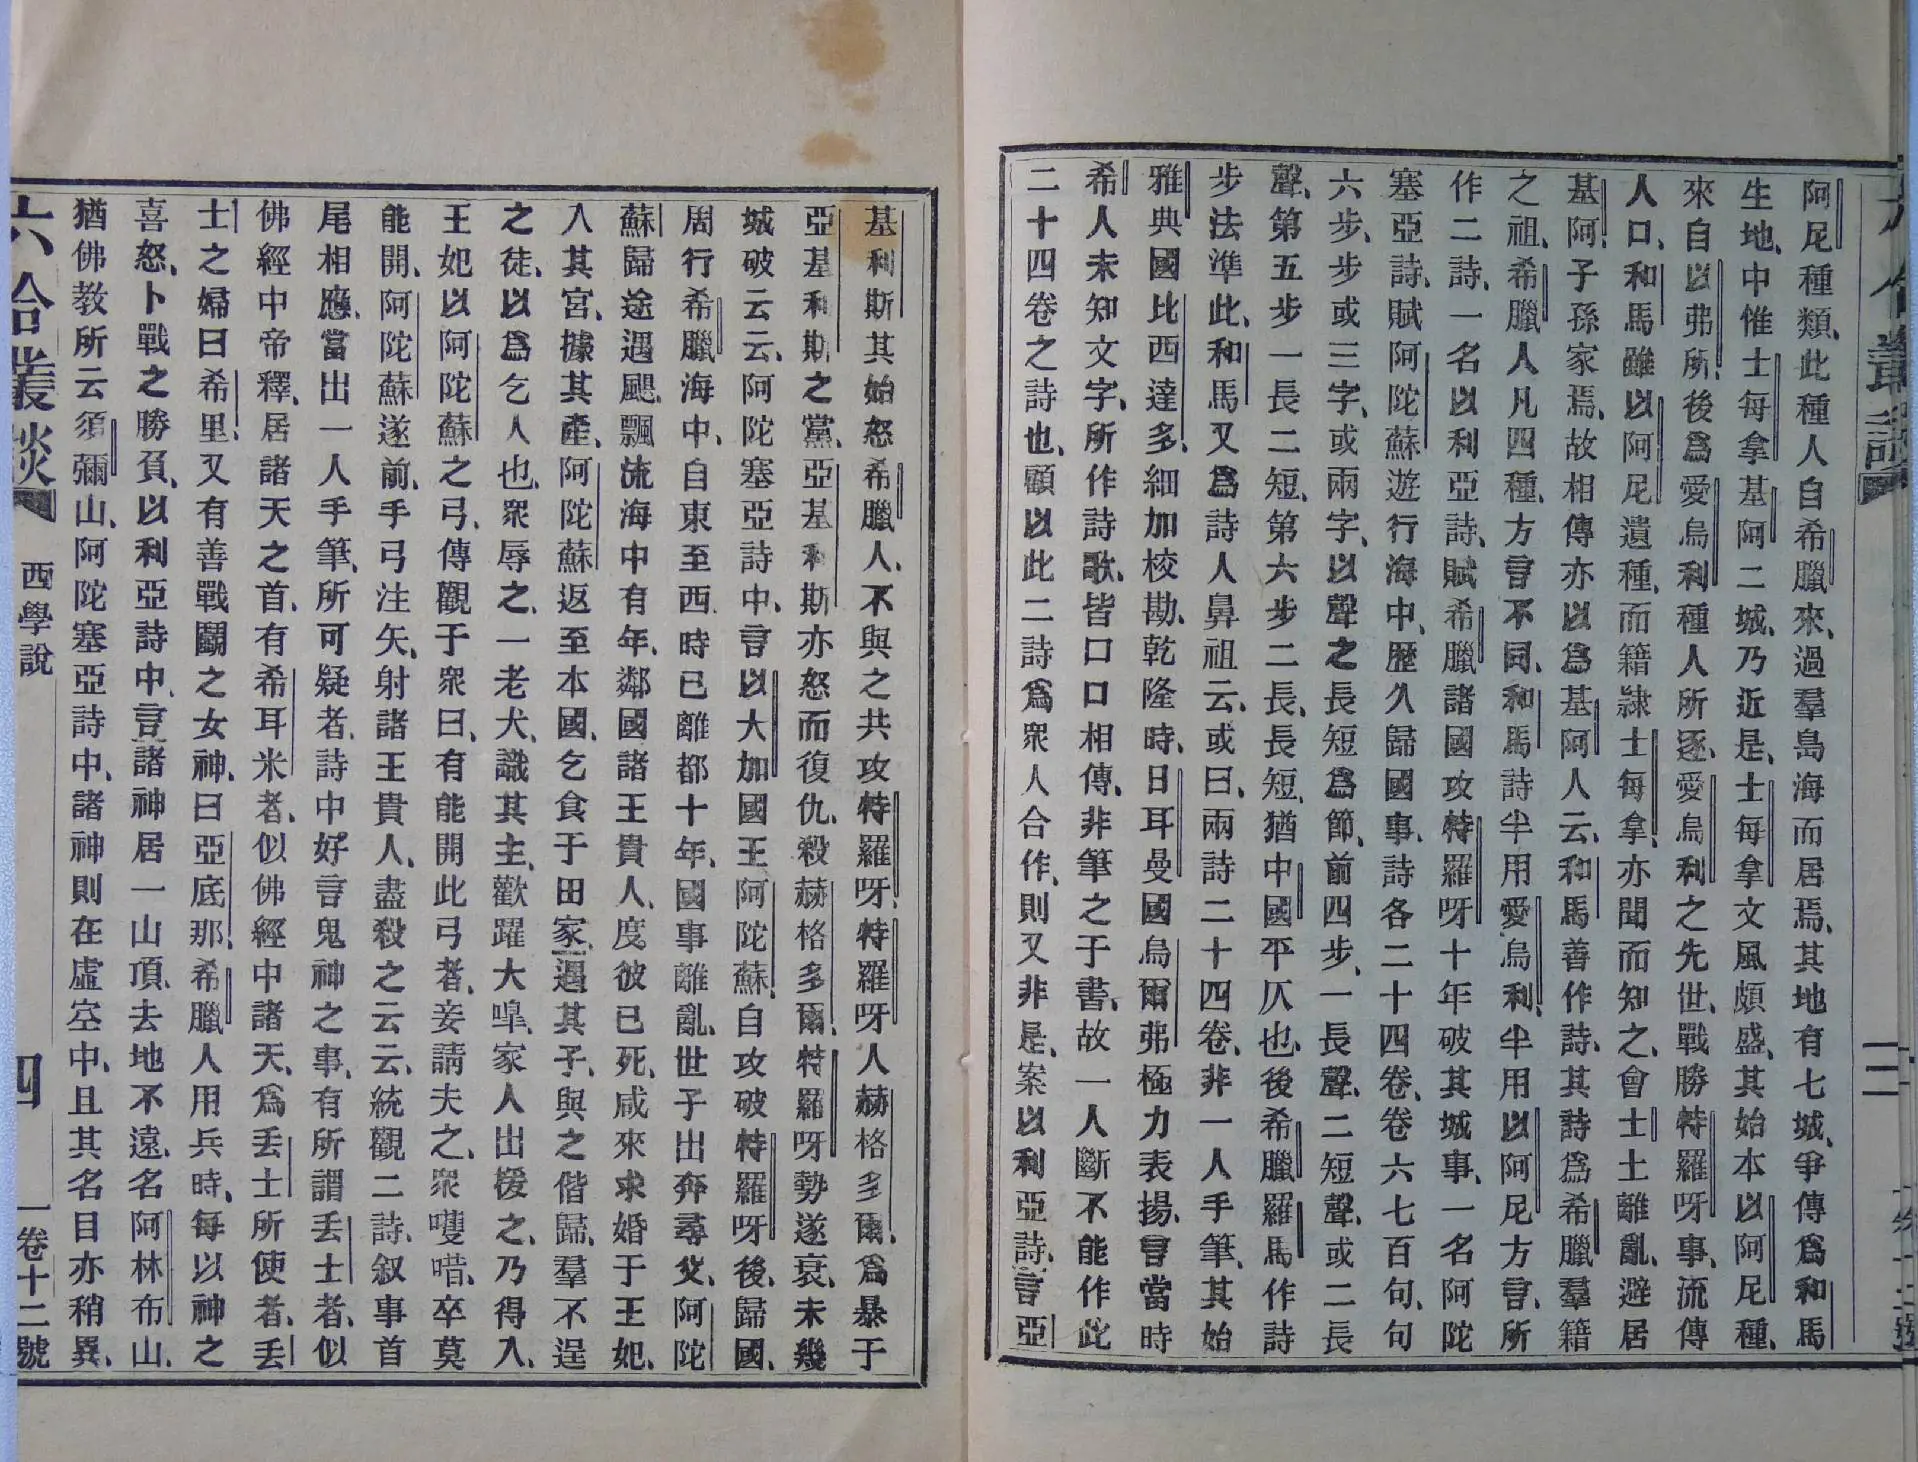 阿尼種類、此種人自希臘來、過羣島海而居焉、其地有七城、爭傳爲和馬
生地、中惟士每拿基阿二城、乃近是、士每拿文風頗盛、其始本以阿尼種、
來自以弗所、後爲愛烏利種人所逐、愛烏利之先世、戰勝特羅呀事、流傳
人口、和馬雖以阿尼遺種、而籍隷士每拿、亦聞而知之、會士土離亂、避居
基阿、子孫家焉、故相傳亦以爲基阿人云、和馬善作詩、其詩爲希臘羣籍
之祖、希臘人凡四種、方言不同、和馬詩半用愛烏利、半用以阿尼方言、所
作二詩、一名以利亞詩、賦希臘諸國攻特羅呀十年破其城事、一名阿陀
塞亞詩、賦阿陀蘇遊行海中、歷久歸國事、詩各二十四卷、卷六七百句、句
六步、步或三字、或兩字、以聲之長短爲節、前四步、一長聲、二短聲、或二長
聲、第五步一長二短、第六步二長、長短、猶中國平仄也、後希臘羅馬作詩
步法準此、和馬又爲詩人鼻祖云、或曰、兩詩二十四卷、非一人手筆、其始
雅典國比西達多、細加校勘、乾隆時、日耳曼國烏爾弗極力表揚、言當時
希人未知文字、所作詩歌、皆口口相傳、非筆之于書、故一人斷不能作此
二十四卷之詩也、顧以此二詩爲衆人合作、則又非是、案以利亞詩、言亞
基利斯其始怒希臘人、不與之共攻特羅呀、特羅呀人赫格多爾、爲暴于
亞基利斯之黨、亞基利斯亦怒而復仇、殺赫格多爾、特羅呀勢遂衰、未幾
城破云云、阿陀塞亞詩中、言以大加國王阿陀蘇、自攻破特羅呀後、歸國、
周行希臘海中、自東至西、時已離都十年、國事離亂、世子出奔尋父、阿陀
蘇歸途遇颶、飄流海中有年、鄰國諸王貴人、度彼已死、咸來求婚于王妃、
入其宮、據其產、阿陀蘇返至本國、乞食于田家、遇其子、與之偕歸、羣不逞
之徒、以爲乞人也、衆辱之、一老犬、識其主、歡躍大嘷、家人出援之、乃得入、
王妃以阿陀蘇之弓、傳觀于衆曰、有能開此弓者、妾請夫之、衆嚄唶、卒莫
能開、阿陀蘇遂前、手弓注矢、射諸王貴人、盡殺之云云、統觀二詩、叙事首
尾相應、當出一人手筆、所可疑者、詩中好言鬼神之事、有所謂丟士者、似
佛經中帝釋、居諸天之首、有希耳米者、似佛經中諸天、爲丟士所使者、丟
士之婦曰希里、又有善戰鬭之女神、曰亞底那、希臘人用兵時、每以神之
喜怒、卜戰之勝負、以利亞詩中、言諸神居一山頂、去地不遠、名阿林布山、
猶佛教所云須彌山、阿陀塞亞詩中、諸神則在虛空中、且其名目亦稍異、
六合叢談
西學說
四
一卷十二號